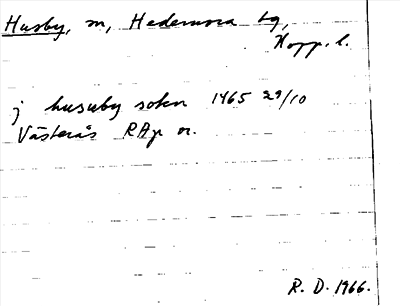 Husby, sn, Hedemora tg,
Kopp. l.
j husuby sokn 1465 29/10
Västerås RAp or.
R. D. 1966.